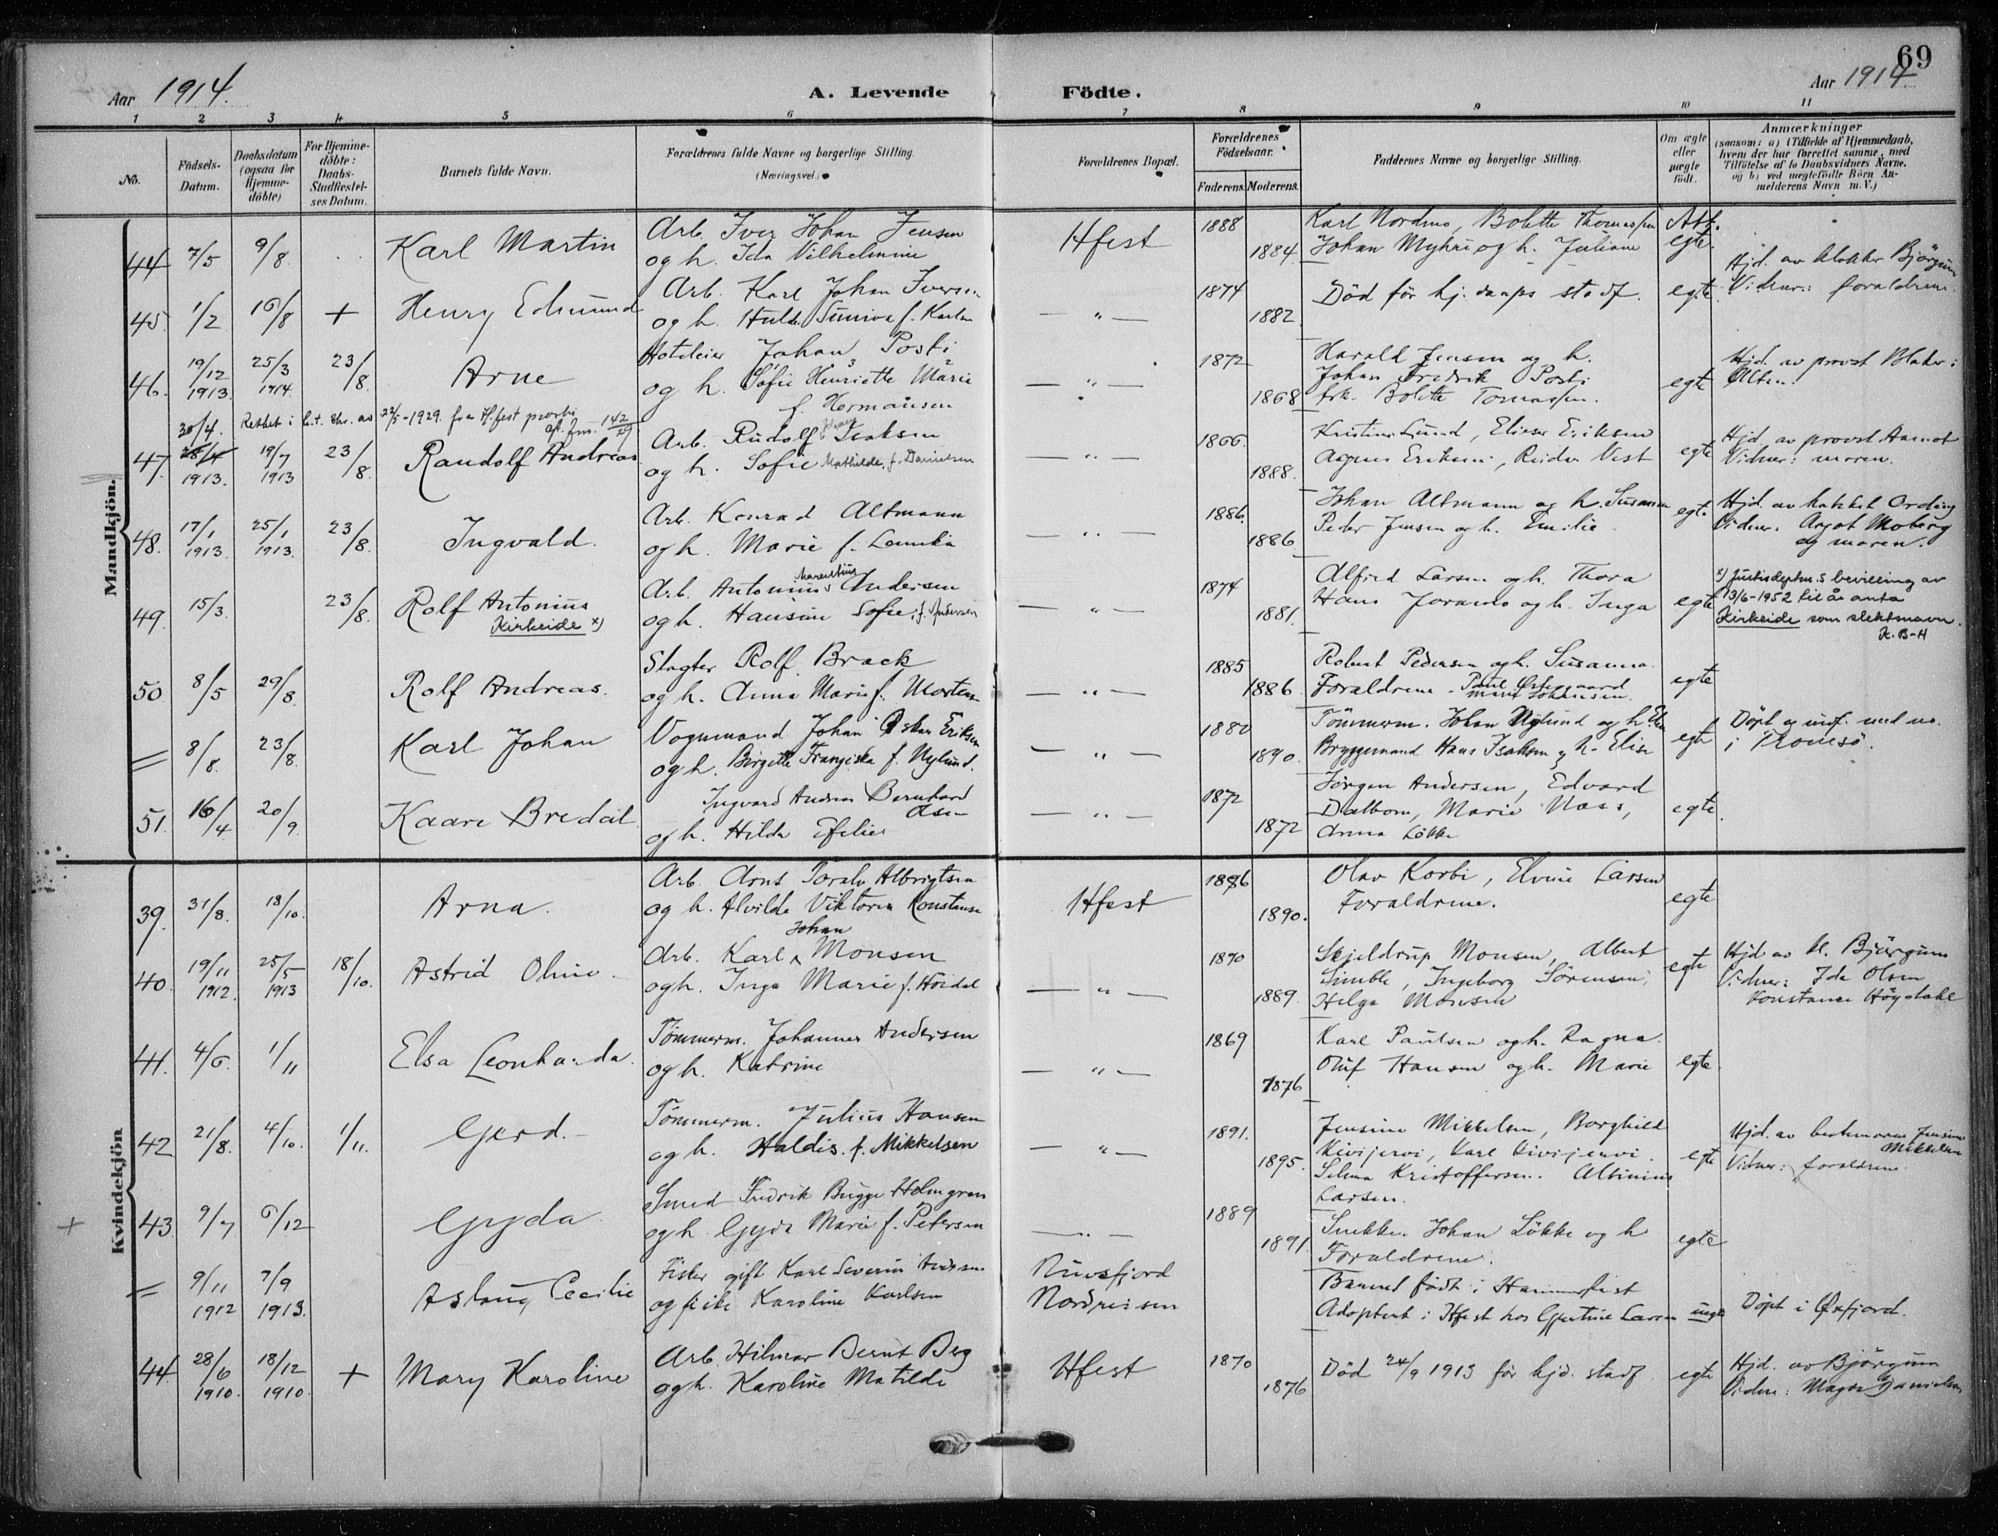 69
Aar 1914.
A. Levende Födte.
Aar 1914.
1 2 3 4 5 6 7 8 9 10 11
No.
Födsels-Datum.
Daabsdatum (ogsaa for Hjemmedöbte)
For Hjemmedöbte: Daabs-Stadfæstelses Datum.
Barnets fulde Navn.
Forældrenes fulde Navne og borgerlige Stilling. (Næringsvei.)
Forældrenes Bopæl.
Forældrenes Födselsaar.
Faderens. Moderens.
Faddernes Navne og borgerlige Stilling.
Om ægte eller uægte födt.
Anmærkninger
(saasom: a) i Tilfælde af Hjemmedaab, hvem der har forrettet samme, med Tilföielse af to Daabsvidners Navne, og b) ved uægtefödte Börn Anmelderens Navn m. V.)
Mandkjön.
44 7/5 9/8 Karl Martin
Arb. Iver Johan Jensen
og h. Ida Vilhelmine
Hfest 1888 1884
Karl Nordmo, Bolette Thomassen
Johan Myhre og h. Juliane
egte
45. 1/2 16/8 + Henry Edmund
Arb. Karl Johan Iversen
og h. Hulda Suniva f. Karlsen
— " — 1874 1882.
Död för hj.daaps stadf. egte
Hjd. av klokker Björgum
Vidner: foraldrene.
46. 19/12 1913. 25/3 1914. 23/8. Arne
Hoteleier Johan Posti
og h. Sofie Henriette Marie
f. Hermansen
— " — 1872 1868
Harald Jensen og h.
Johan Fredrik Posti
frk. Bolette Tomassen.
egte
Hjd. av provst Blaker i
Alten.
30/4. Rettet i h.t. skr. av 22/5-1929. fra H.fest prosti
47. 28/4 1913. 19/7 1913 23/8. Randolf Andreas
Arb. Rudolf Isaksen
og h. Sofie Mathilde, f. Danielsen
— " — 1866. 1888.
Kristine Lund, Elieser Eriksen
Agnes Eriksen, Reidar Vest
egte
Hjd. av provst Aamot
Vidner: moren.
48. 17/1 1913. 25/1 1913. 23/8. Ingvald.
Arb. Konrad Altmann
og h. Marie f. Lamika
— " — 1886. 1886
Johan Altmann og h. Susanna
Peder Jensen og h. Emilie.
egte
Hjd. av kateket Ording
Vidner: Aagot Moberg
og moren.
49. 15/3. 23/8. Rolf Antonius
Kirkeide x)
Arb. Antonius Andersen
og h. Hansine Sofie, f. Andersen
— " — 1874 1881.
Alfred Larsen og h. Thora
Hans Joramo og h. Inga
egte
x) Justisdeptm.s bevilling av
13/6-1952 til å anta
Kirkeide som slektsnavn.
K. B-H
50 8/5 29/8. Rolf Andreas.
Slagter Rolf Brack
og h. Anna Marie f. Morten
— " — 1885 1886
Robert Pedersen og h. Susanna.
Foraldrene. Paul Østegaard
Marie Johansen.
egte
= 8/8. 23/8. Karl Johan
Vognmand Johan Oskar Eriksen
og h. Birgitte Franziska f. Nylund.
— " — 1880 1890.
Tömmerm. Johan Nylund og h.
Bryggemand Hans Isaksen og h. Elise
egte
Döpt og indf. med no.
i Tromsö.
51. 16/4 20/9. Kaare Bredal
Ingvard Andreas Bernhard
Olsen
og h. Hilda Ofelie
— " — 1872 1872
Jörgen Andersen, Edvard
Dalbom, Marie Næss,
Anna Løkke
egte.
Kvindekjön
39. 31/8. 18/10. Arna.
Arb. Arnt Toralv Albrigtsen
og h. Alvilde Viktoria Konstanse
Hfest 1886 1890.
Olav Korbi, Elvine Larsen
Foraldrene.
egte
40. 19/11 1912. 25/5 1913 18/10. Astrid Oline.
Johan
Arb. Karl Monsen
og h. Inga Marie f. Hoidal
— " — 1890 1889.
Skjeldrup Monsen, Albert
Simble, Ingeborg Sörensen,
Helga Monsen
egte
Hjd av kl. Björgum
Vidner: Ida Olsen
Konstance Høgdahl
41. 4/6. 1/11 Elsa Leonharda.
Tømmerm. Johannes Andersen
og h. Katrine
— " — 1869 1876
Karl Paulsen og h. Ragna.
Oluf Hansen og h. Marie
egte.
42 21/8. 4/10. 1/11. Gerd.
Tømmerm. Julius Hansen
og h. Haldis f. Mikkelsen
— " — 1891. 1895.
Jensine Mikkelsen, Borghild
Kivijervi, Karl Kivijervi.
Selma Kristoffersen. Albinius
Larsen.
egte
Hjd. av bestemoren Jensine
Mikkelsen
Vidner: foraldrene.
+ 43 9/7 6/12 Gyda
Smed Fredrik Bugge Holmgren
og h. Gyda Marie f. Petersen
— " — 1889 1891.
Snekker Johan Løkke og h
Foraldrene.
egte
= 9/11 1912 7/9 1913. Aslaug Cecilie
Fisker gift Karl Severin Andersen
og pike Karoline Karlsen
Nuvsfjord
Nordreisen
Barnet födt i Hammerfest
Adoptert i Hfest hos Gjertine Larsen
uegte
Döpt i Øxfjord.
44. 28/6 1910. 18/12 1910. + Mary Karoline
Arb. Hilmar Bernt Berg
og h. Karoline Matilde
Hfest 1870 1876
Död 24/9 1913 för hjd. stadf. egte
Hjd. av Björgum
Vidner: Magda Danielsen